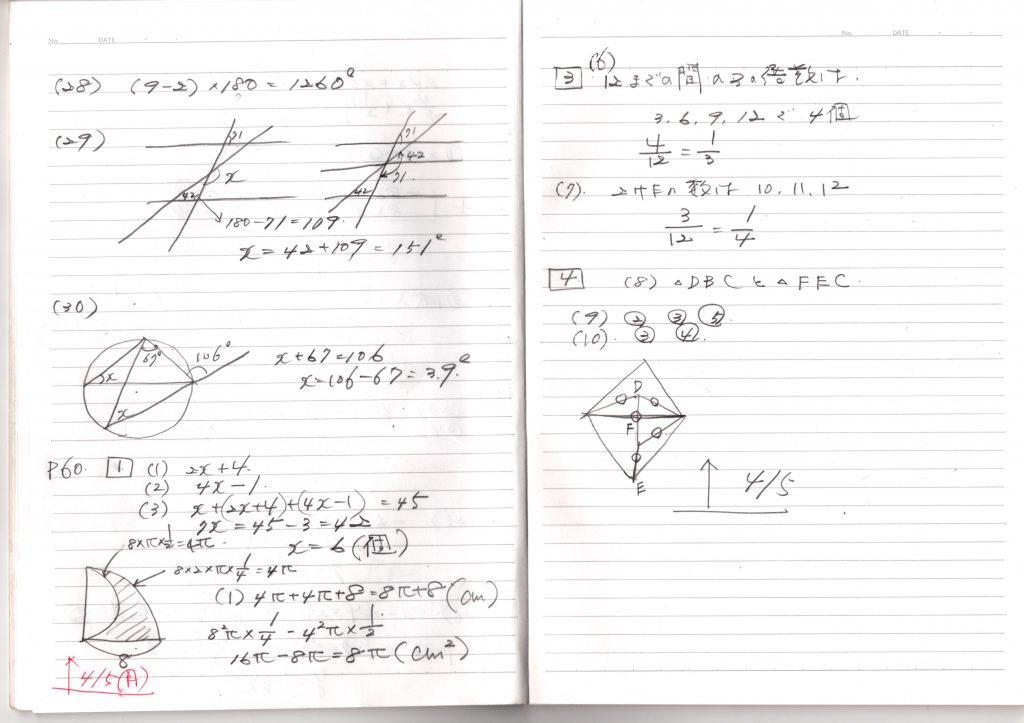 No. DATE
(28) (9-2)×180=1260°
(29)
71
x
42
180-71=109
x=42+109=151°
71
42
71
42
(30)
67°
106°
x
x
x+67=106
x=106-67=39°
P60. 1 (1) 2x+4
(2) 4x-1
(3) x+(2x+4)+(4x-1)=45
7x=45-3=42
x=6(個)
8×π×1/2=4π
8×2×π×1/4=4π
(1) 4π+4π+8=8π+8(cm)
8²π×1/4-4²π×1/2
16π-8π=8π(cm²)
8
4/5(月)
No. DATE
3 (6) 12までの間の3の倍数は、
3, 6, 9, 12で4個
4/12=1/3
(7) 2ケタの数は 10, 11, 12
3/12=1/4
4 (8) △DBCと△FEC
(9) ② ③ ⑤
(10) ③ ④
D
F
E
4/5